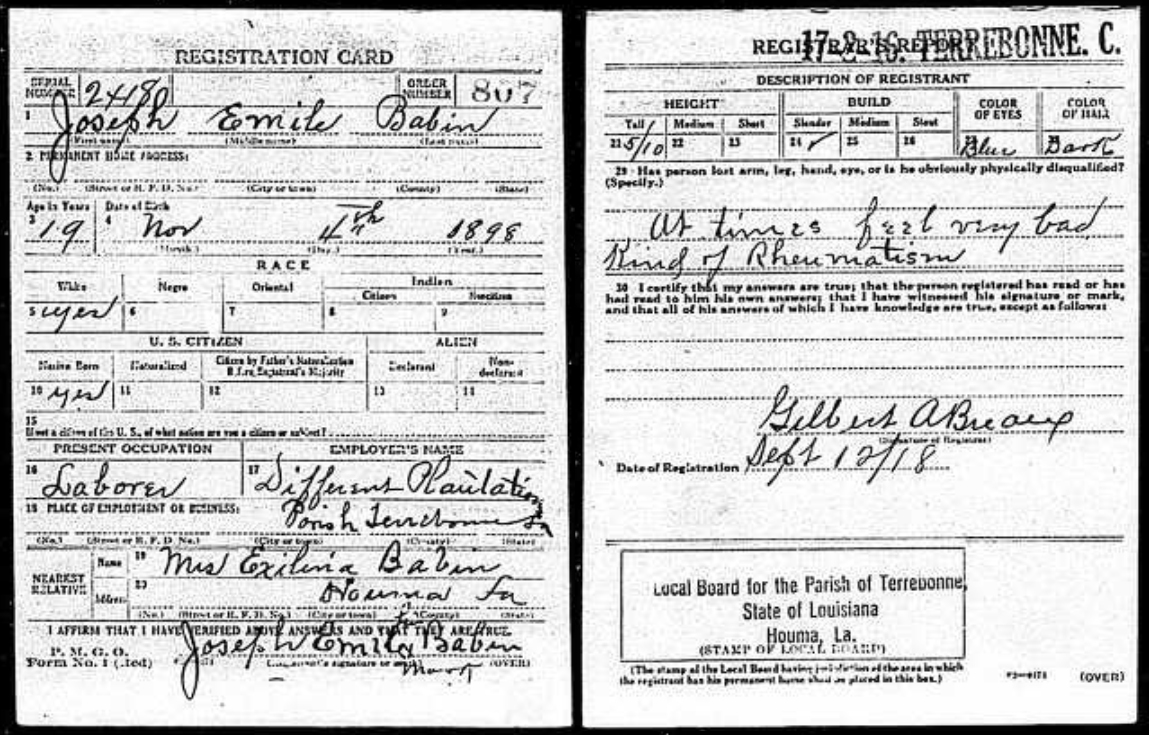 REGISTRATION CARD
SERIAL NUMBER 2418 ORDER NUMBER 807
1 Joseph Emile Babin
(First name) (Middle name) (Last name)
2 PERMANENT HOME ADDRESS:
(No.) (Street or R. F. D. No.) (City or town) (County) (State)
Age in Years Date of Birth
3 19 4 Nov 4th 1898
(Month.) (Day.) (Year.)
RACE
White Negro Oriental Indian
Citizen Noncitizen
5 yes 6 7 8 9
U. S. CITIZEN ALIEN
Native Born Naturalized Citizen by Father's Naturalization Before Registrant's Majority Declarant Non-declarant
10 yes 11 12 13 14
15
If not a citizen of the U. S., of what nation are you a citizen or subject?
PRESENT OCCUPATION EMPLOYER'S NAME
16 Laborer 17 Different Plantations
18 PLACE OF EMPLOYMENT OR BUSINESS:
Parish Terrebonne La
(No.) (Street or R. F. D. No.) (City or town) (County) (State)
NEAREST RELATIVE Name 19 Mrs Exilina Babin
Address 20 Houma La
(No.) (Street or R. F. D. No.) (City or town) (County) (State)
I AFFIRM THAT I HAVE VERIFIED ABOVE ANSWERS AND THAT THEY ARE TRUE.
P. M. G. O.
Form No. 1 (Red) Joseph Emile Babin
(Registrant's signature or mark) (OVER)
Mark
REGISTRAR'S REPORT 17-2-16. TERREBONNE. C.
DESCRIPTION OF REGISTRANT
HEIGHT BUILD COLOR OF EYES COLOR OF HAIR
Tall Medium Short Slender Medium Stout
21 5/10 22 23 24 ✓ 25 26 27 Blue 28 Dark
29 Has person lost arm, leg, hand, eye, or is he obviously physically disqualified?
(Specify.)
At times feel very bad
Kind of Rheumatism
30 I certify that my answers are true; that the person registered has read or has
had read to him his own answers; that I have witnessed his signature or mark,
and that all of his answers of which I have knowledge are true, except as follows:
Gilbert A Breaux
(Signature of Registrar)
Date of Registration Sept 12/18
Local Board for the Parish of Terrebonne,
State of Louisiana
Houma, La.
(STAMP OF LOCAL BOARD)
(The stamp of the Local Board having jurisdiction of the area in which
the registrant has his permanent home shall be placed in this box.)
(OVER)